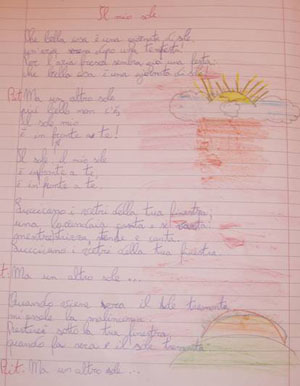 Il mio sole
Che bella cosa è una giornata di sole
un'aria serena dopo una tempesta!
Per l'aria fresca sembra già una festa
Che bella cosa è una giornata di sole!
Rit. Ma un altro sole
più bello non c'è,
il sole mio
è in fronte a te!
Il sole, il mio sole
è in fronte a te
è in fronte a te
Luccicano i vetri della tua finestra,
una lavandaia canta e si vanta
mentre strizza, stende e canta.
Luccicano i vetri della tua finestra
Rit. Ma un altro sole ...
Quando viene sera il sole tramonta
mi prende la malinconia
Resterei sotto la tua finestra
quando fa sera e il sole tramonta.
Rit. Ma un altro sole ...